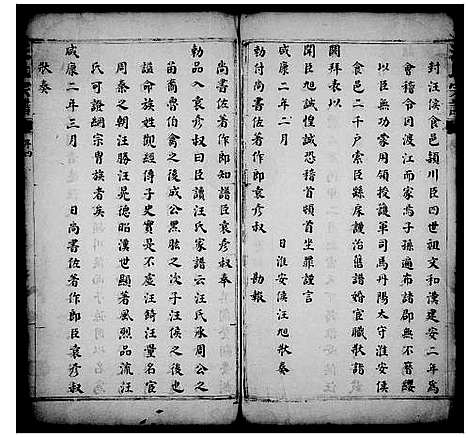 封汪侯食邑潁川臣四世祖文和漢建安二年為
會稽令因渡江而家焉子孫遍布諸郡無不簪纓
以臣無功蒙用領授護軍司馬丹陽太守淮安侯
食邑二千户索臣緜牀謹治舊譜婚官職狀詣
闕拜表以
聞臣旭誠惶誠恐稽首頓首坐罪謹言
咸康二年二月　日淮安侯汪旭狀奏
勅付尚書佐著作郎袁彦叔　勘報
尚書佐著作郎知譜臣袁彦叔奉
勅品入袁彦叔曰臣讀汪氏家譜云汪氏承周公之
苗裔魯伯禽之後成公黑肱之次子汪侯之後也
謚命族姓觀經傳子史實是不虛汪錡汪量名宦
周秦之朝汪勝汪晃德昭漢世顯著風烈品流汪
氏可證綱宗胄族者矣
咸康二年三月　日尚書佐著作郎臣袁彦叔
狀奏